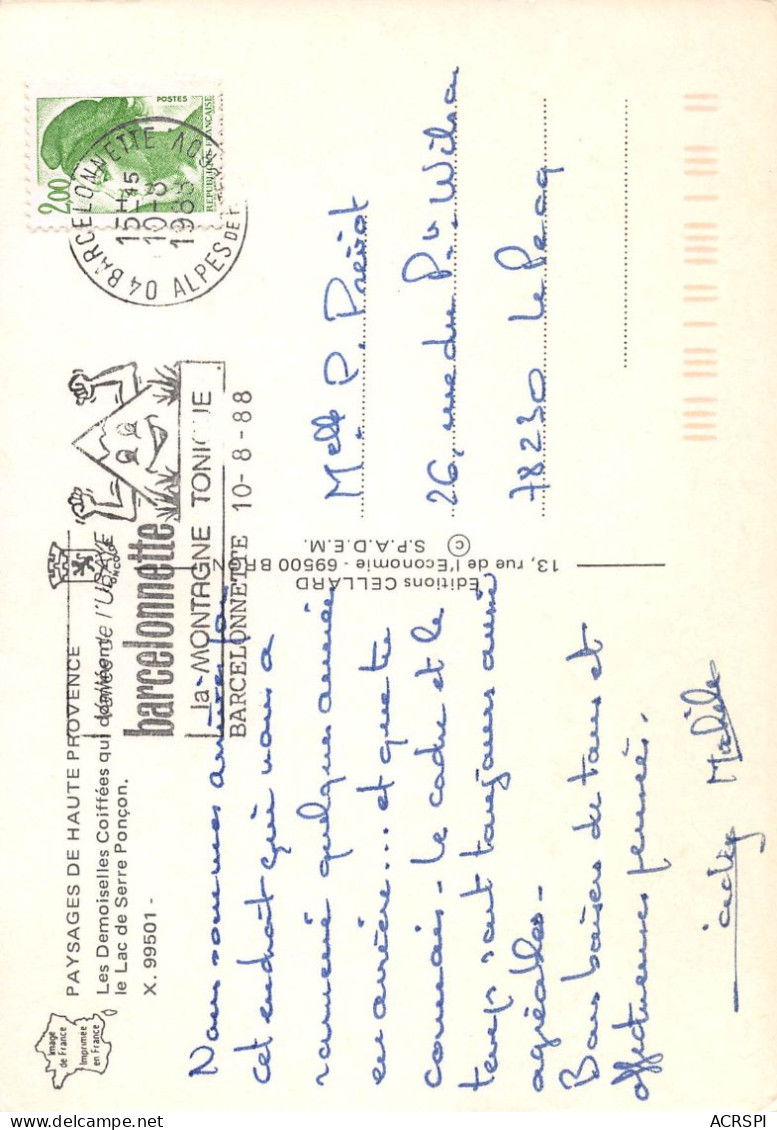 PAYSAGES DE HAUTE PROVENCE
Les Demoiselles Coiffées qui dominent
le Lac de Serre Ponçon.
X. 99501 -
Image
de France
Imprimée
en France
vallée de l'UBAYE
barcelonnette
la MONTAGNE TONIQUE
BARCELONNETTE 10-8-88
04 BARCELONNETTE
ALPES DE
15H45
10-8
1988
2,00
POSTES
REPUBLIQUE FRANÇAISE
Nous sommes arrivés par
cet endroit qui nous a
ramené quelques années
en arrière... et que tu
connais - le cadre et le
temps sont toujours aussi
agréables -
Bons baisers de tous et
affectueuses pensées.
Michèle
Editions CELLARD
13, rue de l'Economie - 69500 BRON
© S.P.A.D.E.M.
Melle P. Prévot
26, rue du P. W. Wilson
78230 Le Pecq
ACRSPI